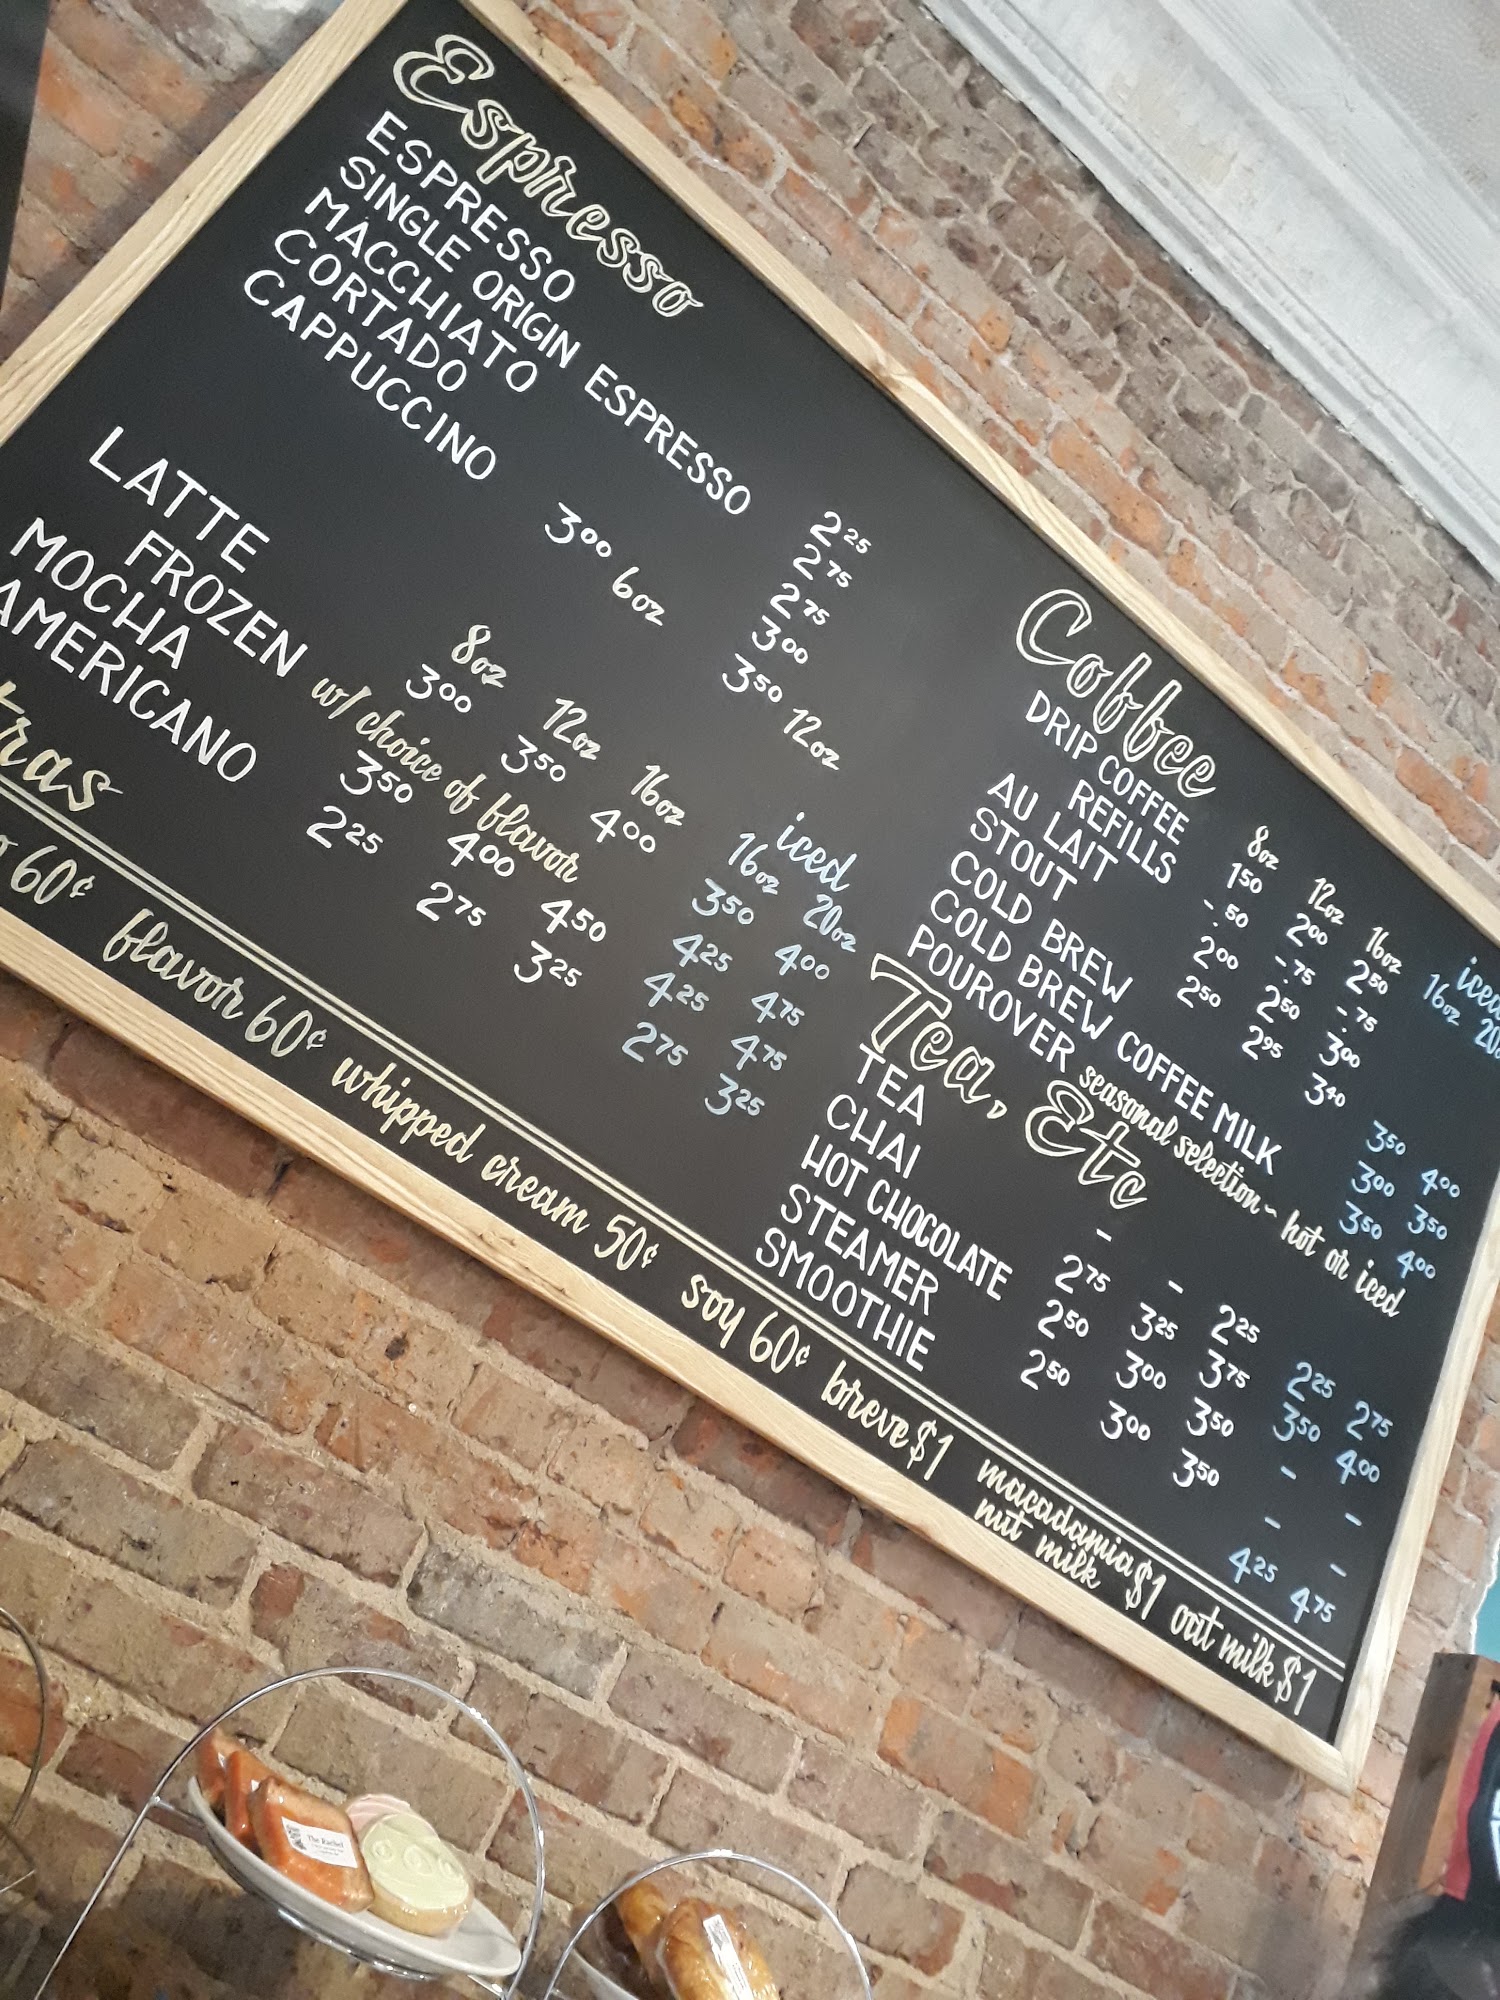 Espresso
ESPRESSO 2 25
SINGLE ORIGIN ESPRESSO 2 75
MACCHIATO 2 75
CORTADO 3 00
CAPPUCCINO 3 00 6oz 3 50 12oz
iced
8oz 12oz 16oz 16oz 20oz
LATTE 3 00 3 50 4 00 3 50 4 00
FROZEN w/ choice of flavor 4 25 4 75
MOCHA 3 50 4 00 4 50 4 25 4 75
AMERICANO 2 25 2 75 3 25 2 75 3 25
Coffee
iced
8oz 12oz 16oz 16oz 20
DRIP COFFEE 1 50 2 00 2 50
REFILLS -.50 -.75 -.75
AU LAIT 2 00 2 50 3 00
STOUT 2 50 2 95 3 40 3 50 4 00
COLD BREW 3 00 3 50
COLD BREW COFFEE MILK 3 50 4 00
POUROVER seasonal selection ~ hot or iced
Tea, Etc
TEA - - 2 25 2 25 2 75
CHAI 2 75 3 25 3 75 3 50 4 00
HOT CHOCOLATE 2 50 3 00 3 50 - -
STEAMER 2 50 3 00 3 50 - -
SMOOTHIE 4 25 4 75
tras
60¢ flavor 60¢ whipped cream 50¢ soy 60¢ breve $1 macadamia nut milk $1 oat milk $1
The Rachel